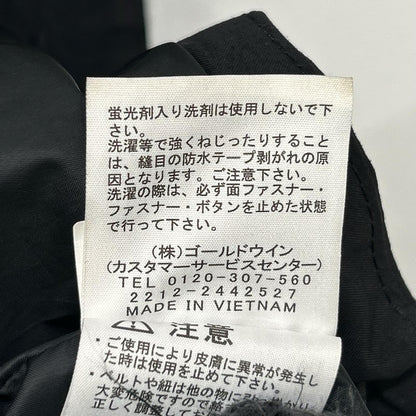 蛍光剤入り洗剤は使用しないで下
さい。
洗濯等で強くねじったりすること
は、縫目の防水テープ剥がれの原
因となります。ご注意下さい。
洗濯の際は、必ず面ファスナー・
ファスナー・ボタンを止めた状態
で行って下さい。
(株)ゴールドウイン
(カスタマーサービスセンター)
TEL 0120-307-560
2212-2442527
MADE IN VIETNAM
注意
・ご使用により皮膚に異常が発生し
た時は使用を止めて下さい。
・ベルトや紐は他の物に引っ掛か
大変危険ですので
正しく調整して